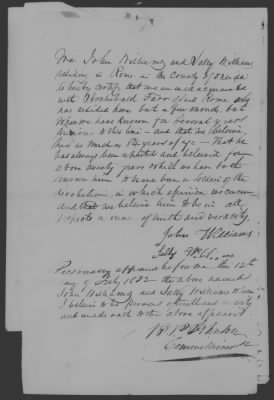 We John Williams and Sally Williams
residing in Rome in the County of Oneida
do hereby certify that we are well acquainted
with Archibald
has resided here but a few months, but
whom we have known for several years
previous to this time – and that we believe
him as much as years of age – That he
has always been reputed and believed for
above twenty years which we have
known him to have been a soldier of the
revolution, in which opinion we concur
and that we believe him to be in all
respects a man of truth and veracity.
John Williams
Sally Williams
Personally appeared before me this 12th
day of July 1832 the above named
John Williams and Sally Williams whom
I believe to be persons of
and made oath to the above
Commissioner